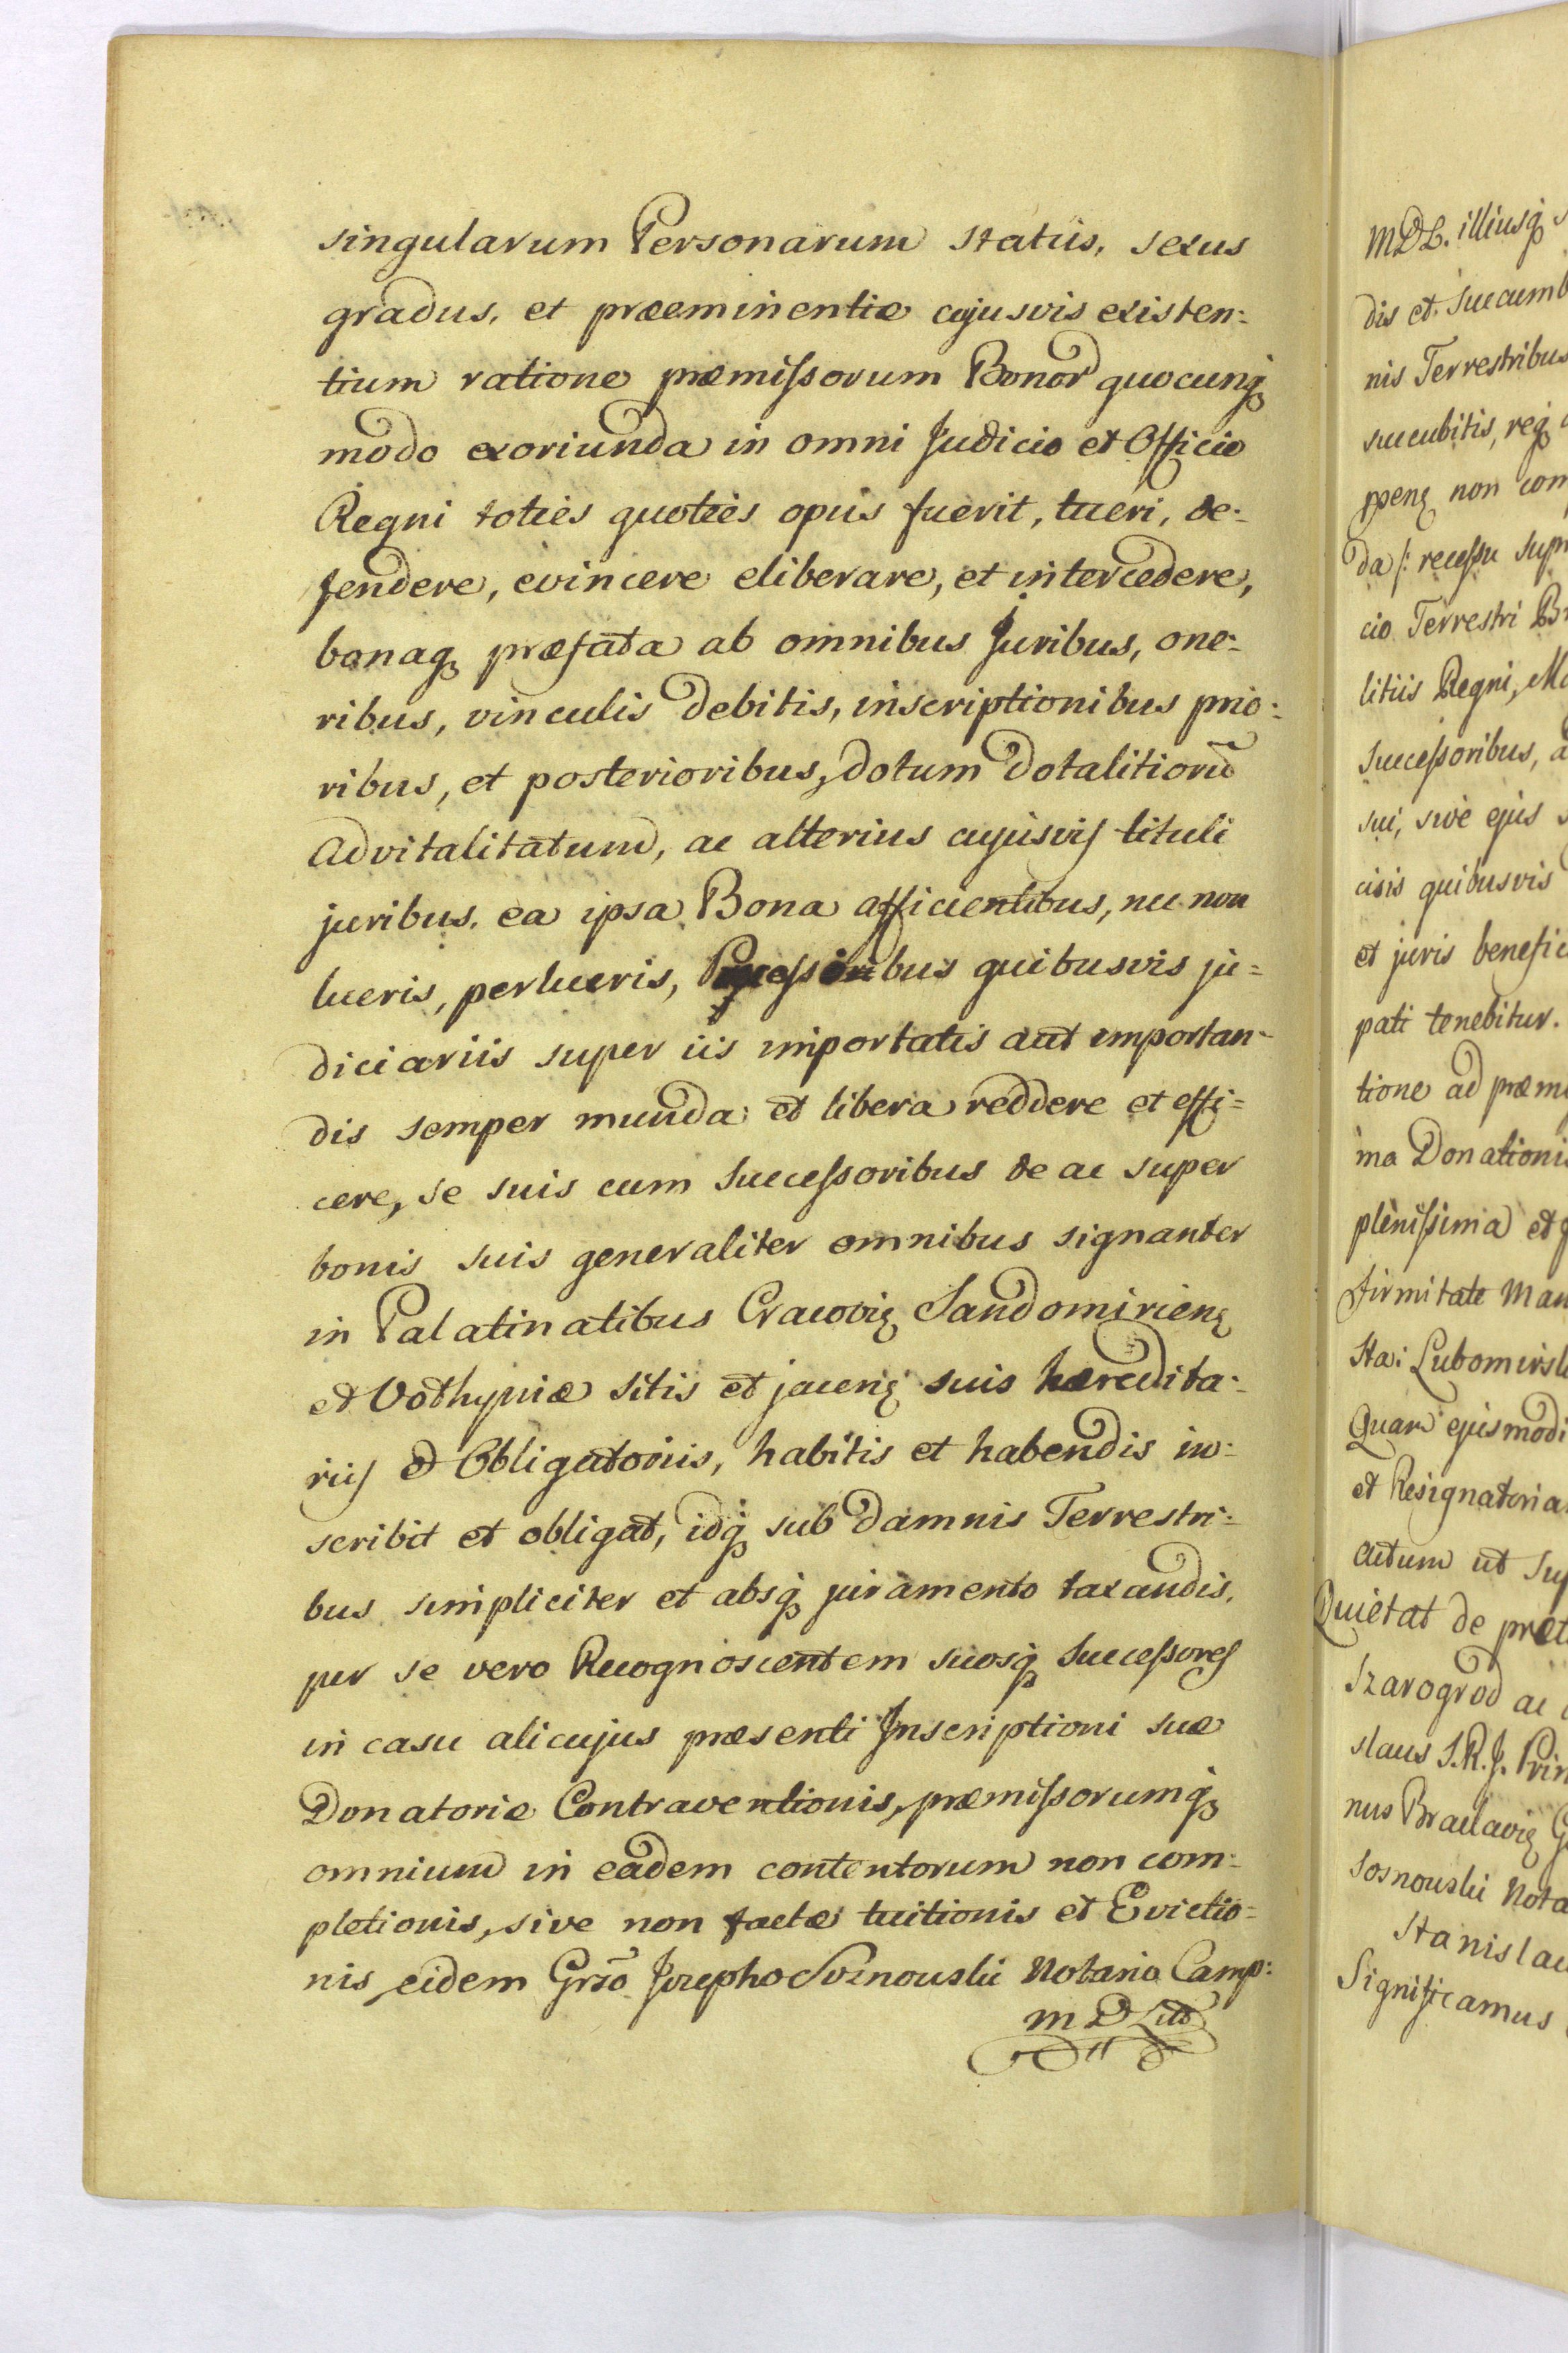 singularum Personarum status, sexus
gradus, et præeminentiæ cujusvis existen:
tium ratione præmissorum Bonor quocunq
modo exoriunda in omni Judicio et Officio
Regni toties quoties opus fuerit, tueri, de:
fendere, evincere eliberare, et intercedere,
bonaq præfata ab omnibus Juribus, one:
ribus, vinculis debitis, inscriptionibus prio:
ribus, et posterioribus, dotum dotalitiorũ
advitalitatum, ac alterius cujusvis tituli
juribus, ea ipsa Bona afficientibus, nec non
lucris, perlucris, Processibus quibusvis ju=
diciariis super iis importatis aut importan-
dis semper munda et libera reddere et effi=
cere, se suis cum Successoribus de ac super
bonis suis generaliter omnibus signanter
in Palatinatibus Cracovię Sandomirienę
et Volhyniæ sitis et jacenę suis hæredita:
riis et Obligatoriis, habitis et habendis in:
scribit et obligat, idq sub damnis Terrestri:
bus simpliciter et absq juramento taxandis,
per se vero Recognoscentem suosq Successores
in casu alicujus præsenti Inscriptioni suæ
Donatoriæ Contraventionis, præmissorumq
omnium in eadem contentorum non com:
pletionis, sive non factæ tuitionis et Evictio=
nis eidem Grso Josepho Sosnouski Notario Camp:
M D Litt
MDL. illiusq
dis et succumb
nis Terrestribus
succubitis, req
ppenę non com
da /: recessu sup
cio Terrestri Br
litiis Regni, M
Successoribus, a
sui, sive ejus
cisis quibusvis
et juris benefic
pati tenebitur.
tione ad præm
ma Donationis
plenissima et
firmitate man
Sta: Lubomirsk
Quam ejusmodi
et Resignatoria
actum ut sup
Quietat de præt
Szarogrod ac
slaus S.R.J. Prin
nus Braclavię G
Sosnouski Nota
Stanislau
Significamus